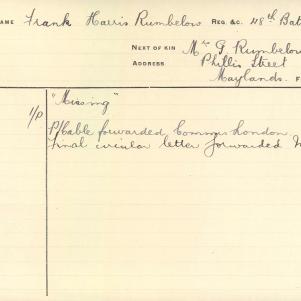 NAME Frank Harris Rumbelow REG. &C. 48th Bat
NEXT OF KIN Mr G. Rumbelow
ADDRESS Phillis Street
Maylands.
"Missing"
1/P
P/Cable forwarded Commns London
Final circular letter forwarded